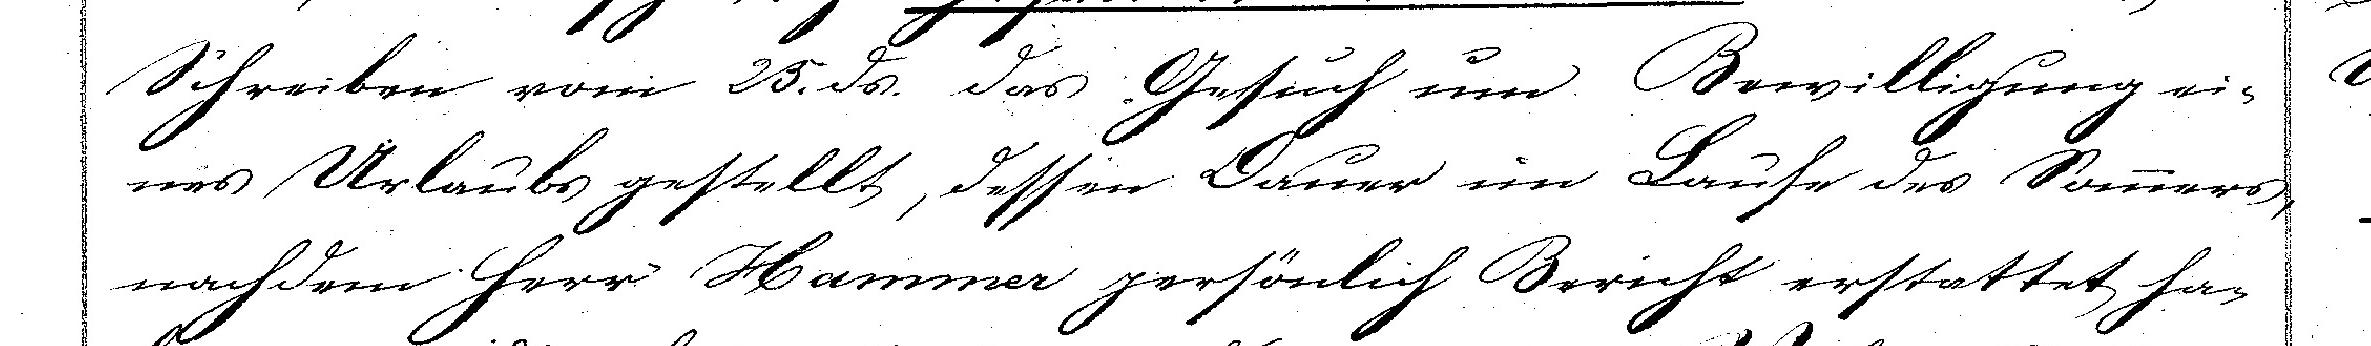 Schreiben vom 25. ds. das Gesuch um Bewilligung ei-
nes Urlaubs gestellt, dessen Dauer im Laufe des Somers,
nachdem Herr Hammer persönlich Bericht erstattet ha-